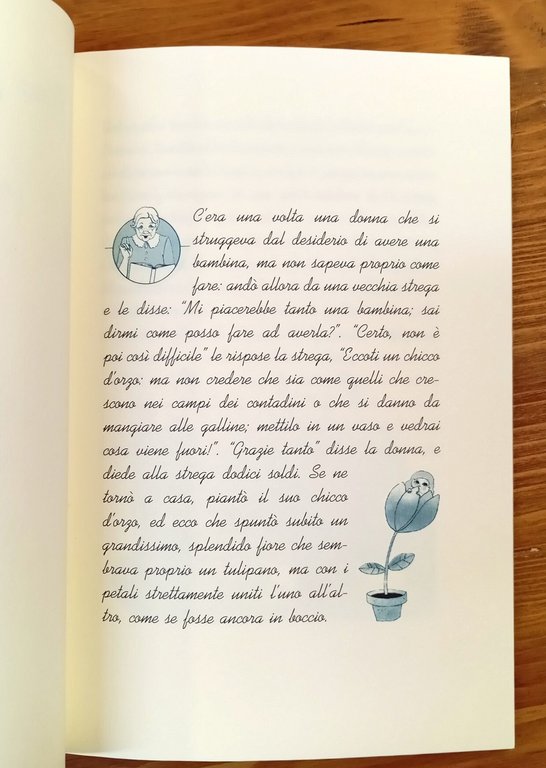 C'era una volta una donna che si
struggeva dal desiderio di avere una
bambina, ma non sapeva proprio come
fare: andò allora da una vecchia strega
e le disse: "Mi piacerebbe tanto una bambina; sai
dirmi come posso fare ad averla?". "Certo, non è
poi così difficile" le rispose la strega, "Eccoti un chicco
d'orzo: ma non credere che sia come quelli che cre-
scono nei campi dei contadini o che si danno da
mangiare alle galline; mettilo in un vaso e vedrai
cosa viene fuori!". "Grazie tanto" disse la donna, e
diede alla strega dodici soldi. Se ne
tornò a casa, piantò il suo chicco
d'orzo, ed ecco che spuntò subito un
grandissimo, splendido fiore che sem-
brava proprio un tulipano, ma con i
petali strettamente uniti l'uno all'al-
tro, come se fosse ancora in boccio.